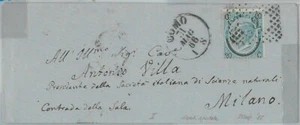 COMO
MAG
All' Ill.mo Sig. Cav.
Antonio Villa
Presidente della Società italiana di Scienze naturali
Contrada della Sala
Milano.